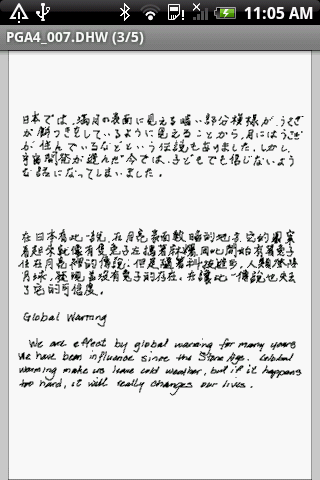 11:05 AM
PGA4_007.DHW (3/5)
日本では、満月の表面に見える暗い部分模様が、うさぎ
が餅つきをしているように見えることから、月にはうさぎ
が住んでいるなどという伝説もありました。しかし、
宇宙開発が進んだ今では、子どもでも信じないよう
な話になってしまいました。
在日本有此一說，在月亮表面較暗的地方，它的
看起來就像有隻兔子在搗著麻糬，因此開始有著兔子
住在月亮裡的傳說；但是隨著科技進步，人類登陸
月球，發現並沒有兔子的存在，在讓此一傳說也失去
了它的可信度。
Global Warming
We are effect by global warming for many years
We have been influence since the Stone Age. Global
warming make us leave cold weather, but if it happens
too hard, it will really changes our lives.